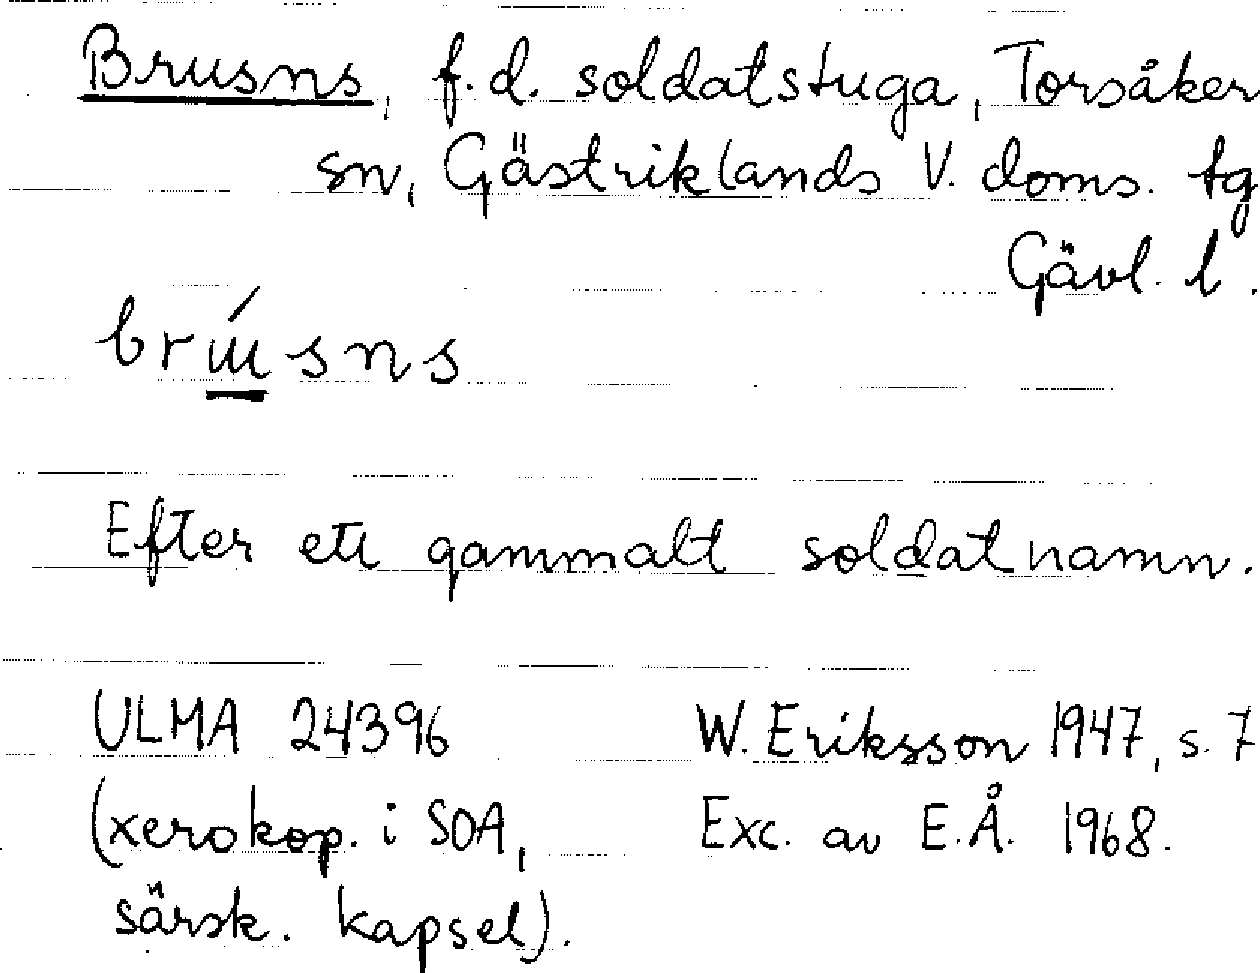 Brusns, f.d. soldatstuga, Torsåker
sn, Gästriklands V. doms. tg
Gävl. l.
brúsns
Efter ett gammalt soldatnamn.
ULMA 24396 W. Eriksson 1947, s. 7
(xerokop. i SOA, Exc. av E.Å. 1968.
särsk. kapsel).